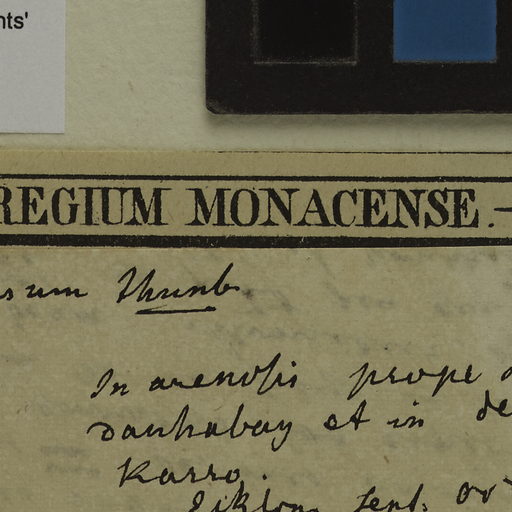 nts'
REGIUM MONACENSE.—
sum Thunb.
In arenosis prope
Danhabay et in de
Karro.
Eiklon. Sent.